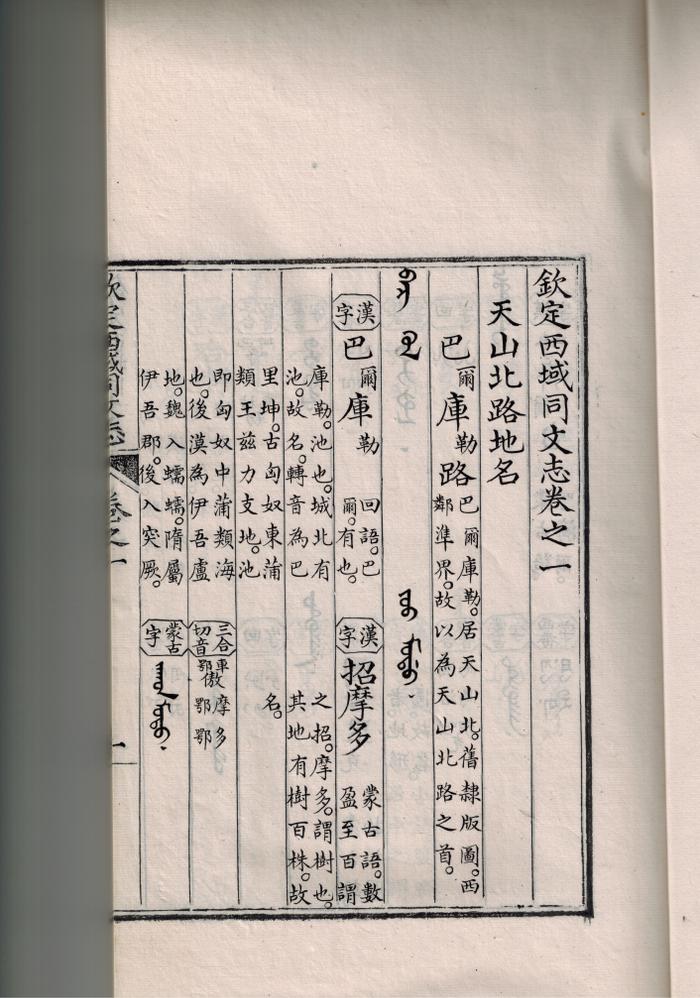 欽定西域同文志卷之一
天山北路地名
巴爾庫勒路
巴爾庫勒。居天山北。舊隸版圖。西
鄰準界。故以為天山北路之首。
漢字
巴爾庫勒
回語。巴
爾。有也。
庫勒。池也。城北有
池。故名。轉音為巴
里坤。古匈奴東蒲
類王茲力支地。池
即匈奴中蒲類海
也。後漢為伊吾盧
地。魏入蠕蠕。隋屬
伊吾郡。後入突厥。
漢字
招摩多
蒙古語。數
盈至百謂
之招。摩多。謂樹也。
其地有樹百株。故
名。
三合切音
車鄂傲
摩鄂
多鄂
蒙古字
欽定西域同文志
卷之一
一